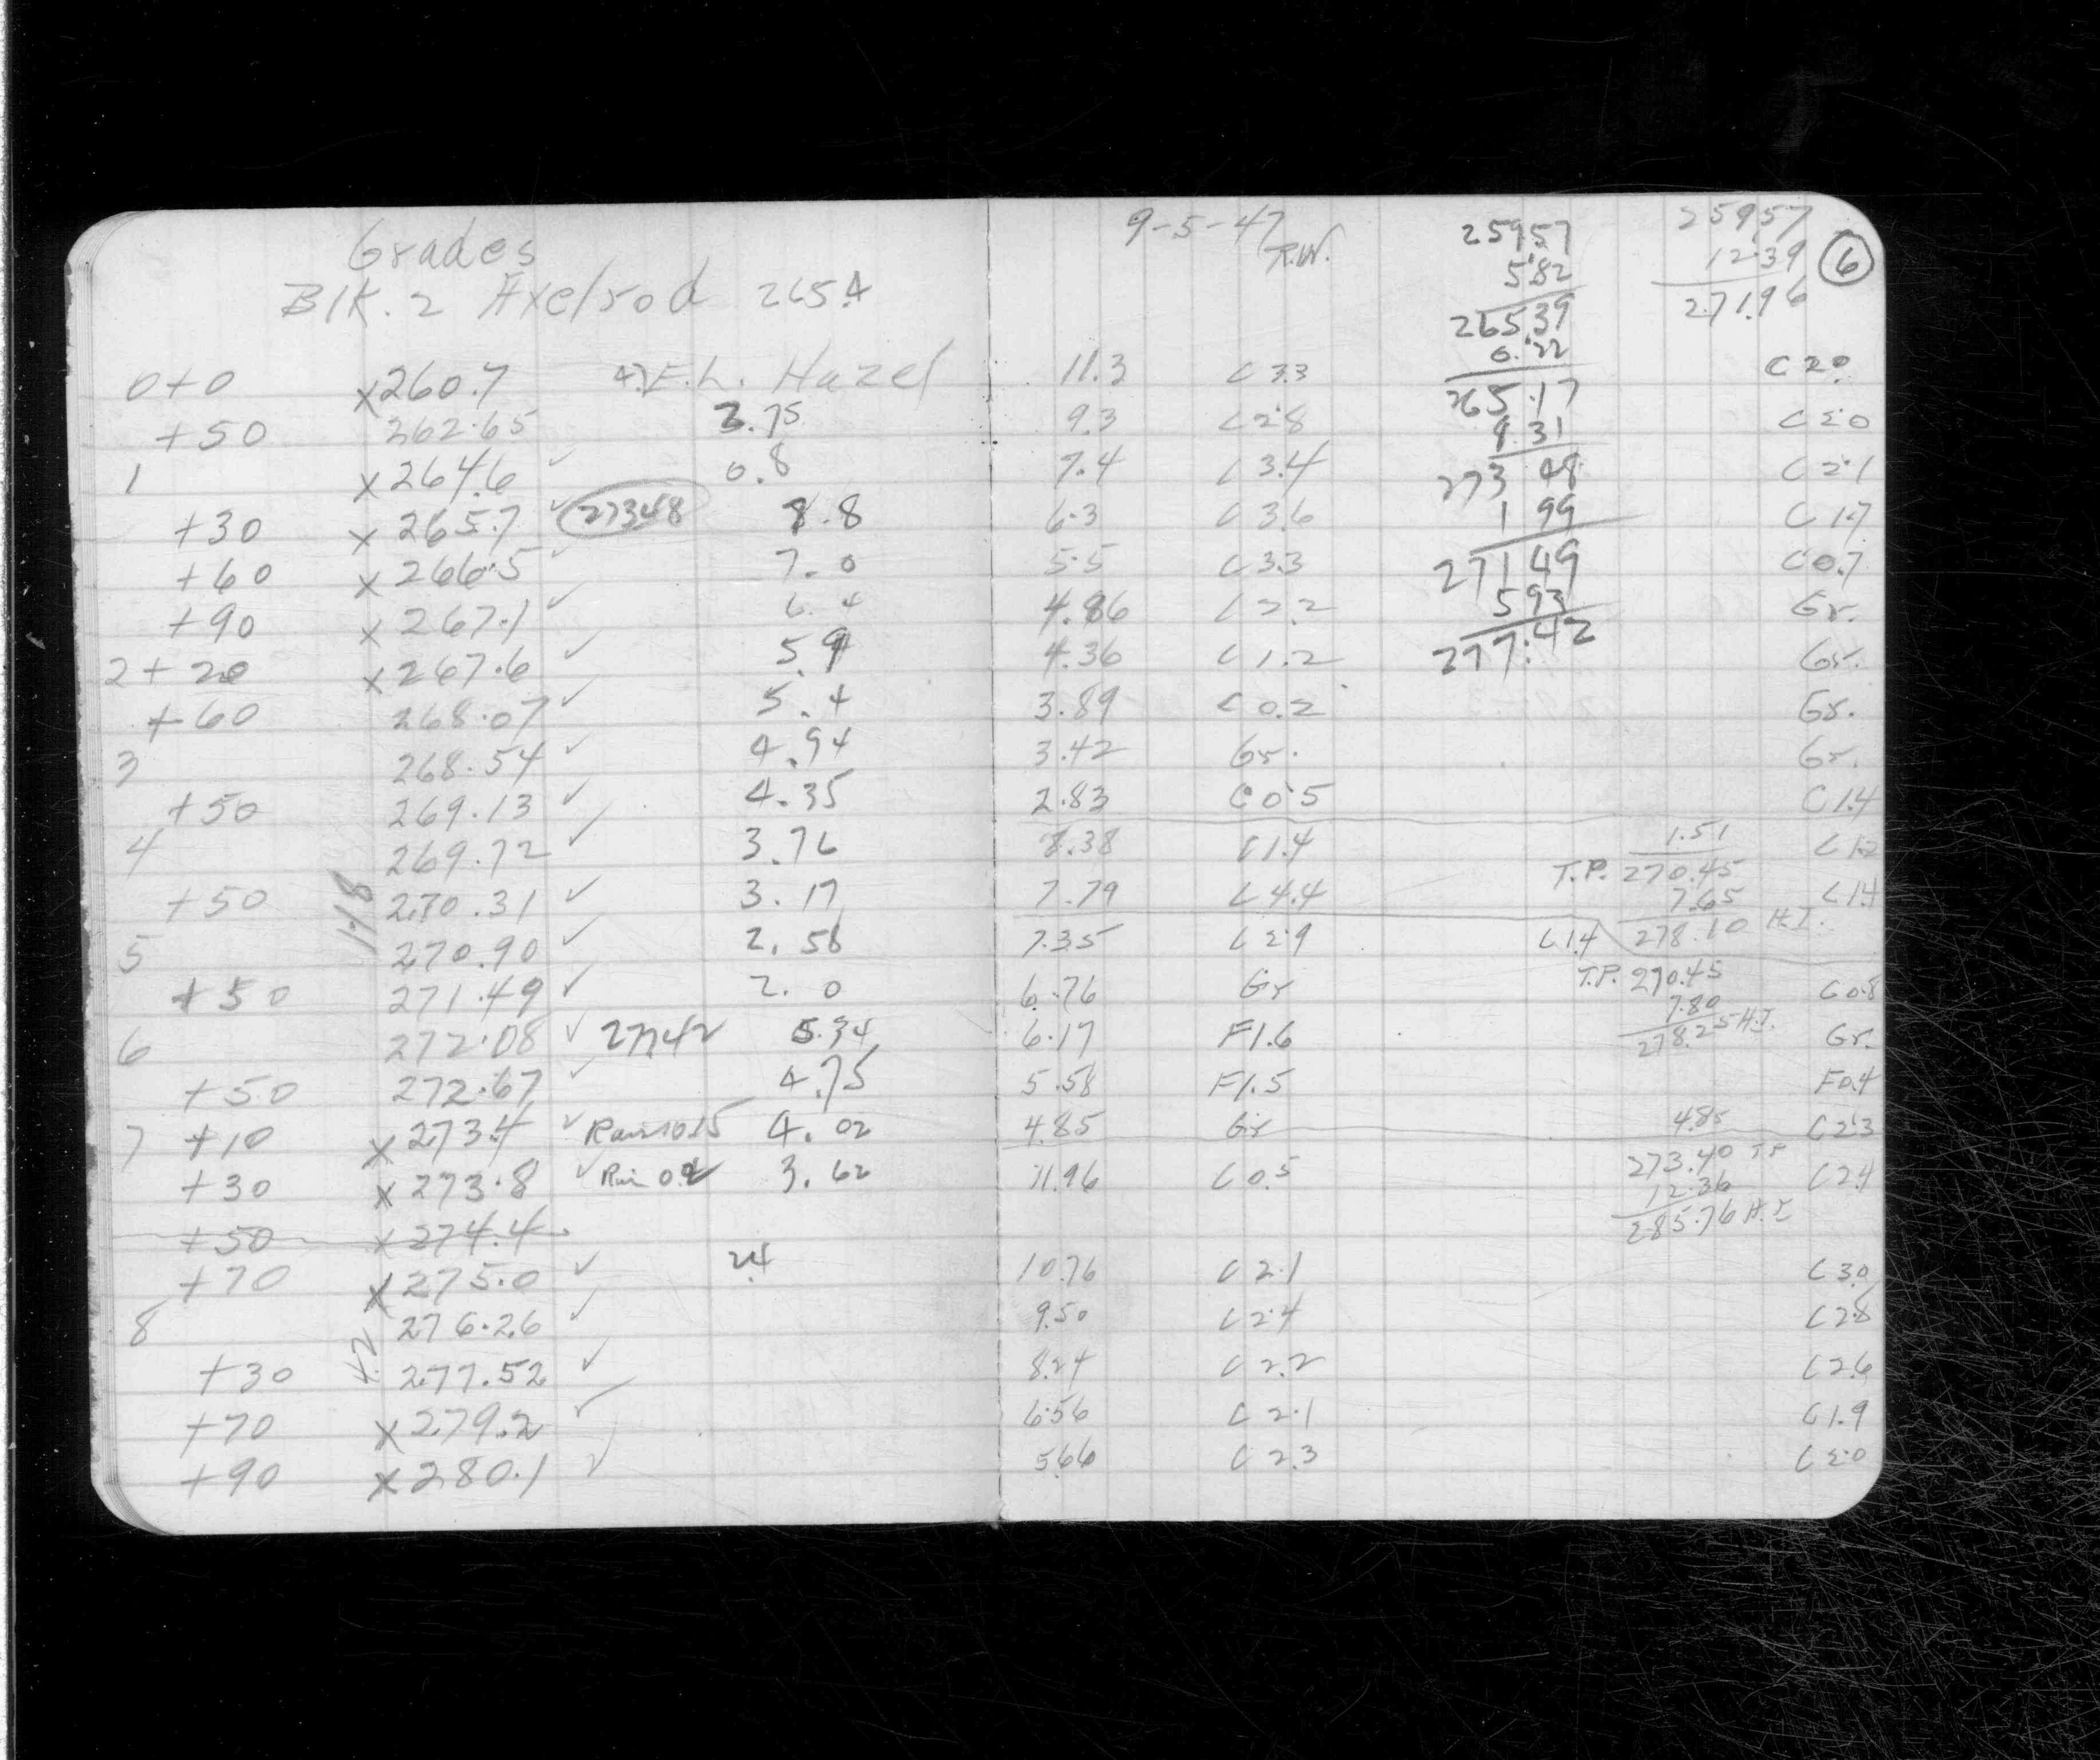 Grades
Blk. 2 Axelrod 265.4
0+0 x260.7 E.L. Hazel
+50 262.65 2.75
1 x264.6 ✓ 0.8
+30 x265.7 ✓ 273.48 8.8
+60 x266.5 ✓ 7.0
+90 x267.1 ✓ 6.4
2+20 x267.6 ✓ 5.9
+60 268.07 ✓ 5.4
3 268.54 ✓ 4.94
+50 269.13 ✓ 4.35
4 269.72 ✓ 3.76
+50 270.31 ✓ 3.17
1.18
5 270.90 ✓ 2.58
+50 271.49 ✓ 2.0
6 272.08 ✓ 277.42 5.34
+50 272.67 ✓ 4.75
7 +10 x273.4 ✓ 4.02
+30 x273.8 ✓ 3.62
+50 x274.4
+70 x275.0 ✓ 2.4
8 276.26 ✓
4.2
+30 277.52 ✓
+70 x279.2 ✓
+90 x280.1 ✓
9-5-47
R.W.
6
259.57
5.82
265.39
0.22
265.17
8.31
273.48
1.99
271.49
5.93
277.42
259.57
12.39
271.96
11.3 C3.3 C2.0
9.3 C2.8 C2.0
7.4 C3.4 C2.1
6.3 C3.6 C1.7
5.5 C3.3 C0.7
4.86 C2.2 Gr.
4.36 C1.2 Gr.
3.89 C0.2 Gr.
3.42 Gr. Gr.
2.83 C0.5 C1.4
8.38 C1.4 1.51 C1.2
T.P. 270.45
7.79 C4.4 7.65 C1.4
7.35 C2.9 C1.4 278.10 H.I.
T.P. 270.45
6.76 Gr 7.80 C0.8
6.17 F1.6 278.25 H.I. Gr.
5.58 F1.5 F0.4
4.85 Gr 4.85 C2.3
273.40 T.P.
11.96 C0.5 12.36 C2.4
285.76 H.I
10.76 C2.1 C3.0
9.50 C2.4 C2.8
8.24 C2.2 C2.6
6.56 C2.1 C1.9
5.66 C2.3 C2.0